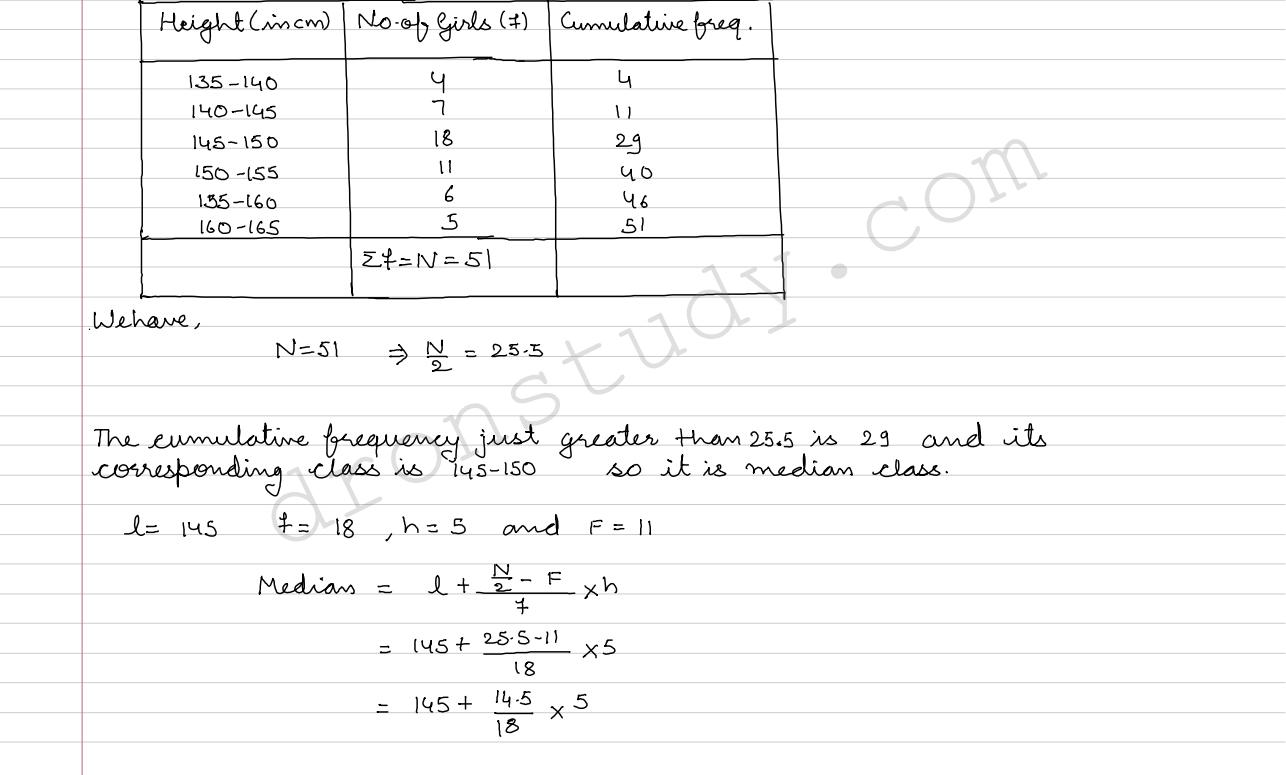 Height (in cm) No. of Girls (f) Cumulative freq.
135-140 4 4
140-145 7 11
145-150 18 29
150-155 11 40
155-160 6 46
160-165 5 51
Σf=N=51
We have,
N=51 ⇒ N/2 = 25.5
The cumulative frequency just greater than 25.5 is 29 and its
corresponding class is 145-150 so it is median class.
l= 145 f= 18 , h=5 and F = 11
Median = l + (N/2 - F)/f × h
= 145 + (25.5-11)/18 × 5
= 145 + 14.5/18 × 5
dronstudy.com